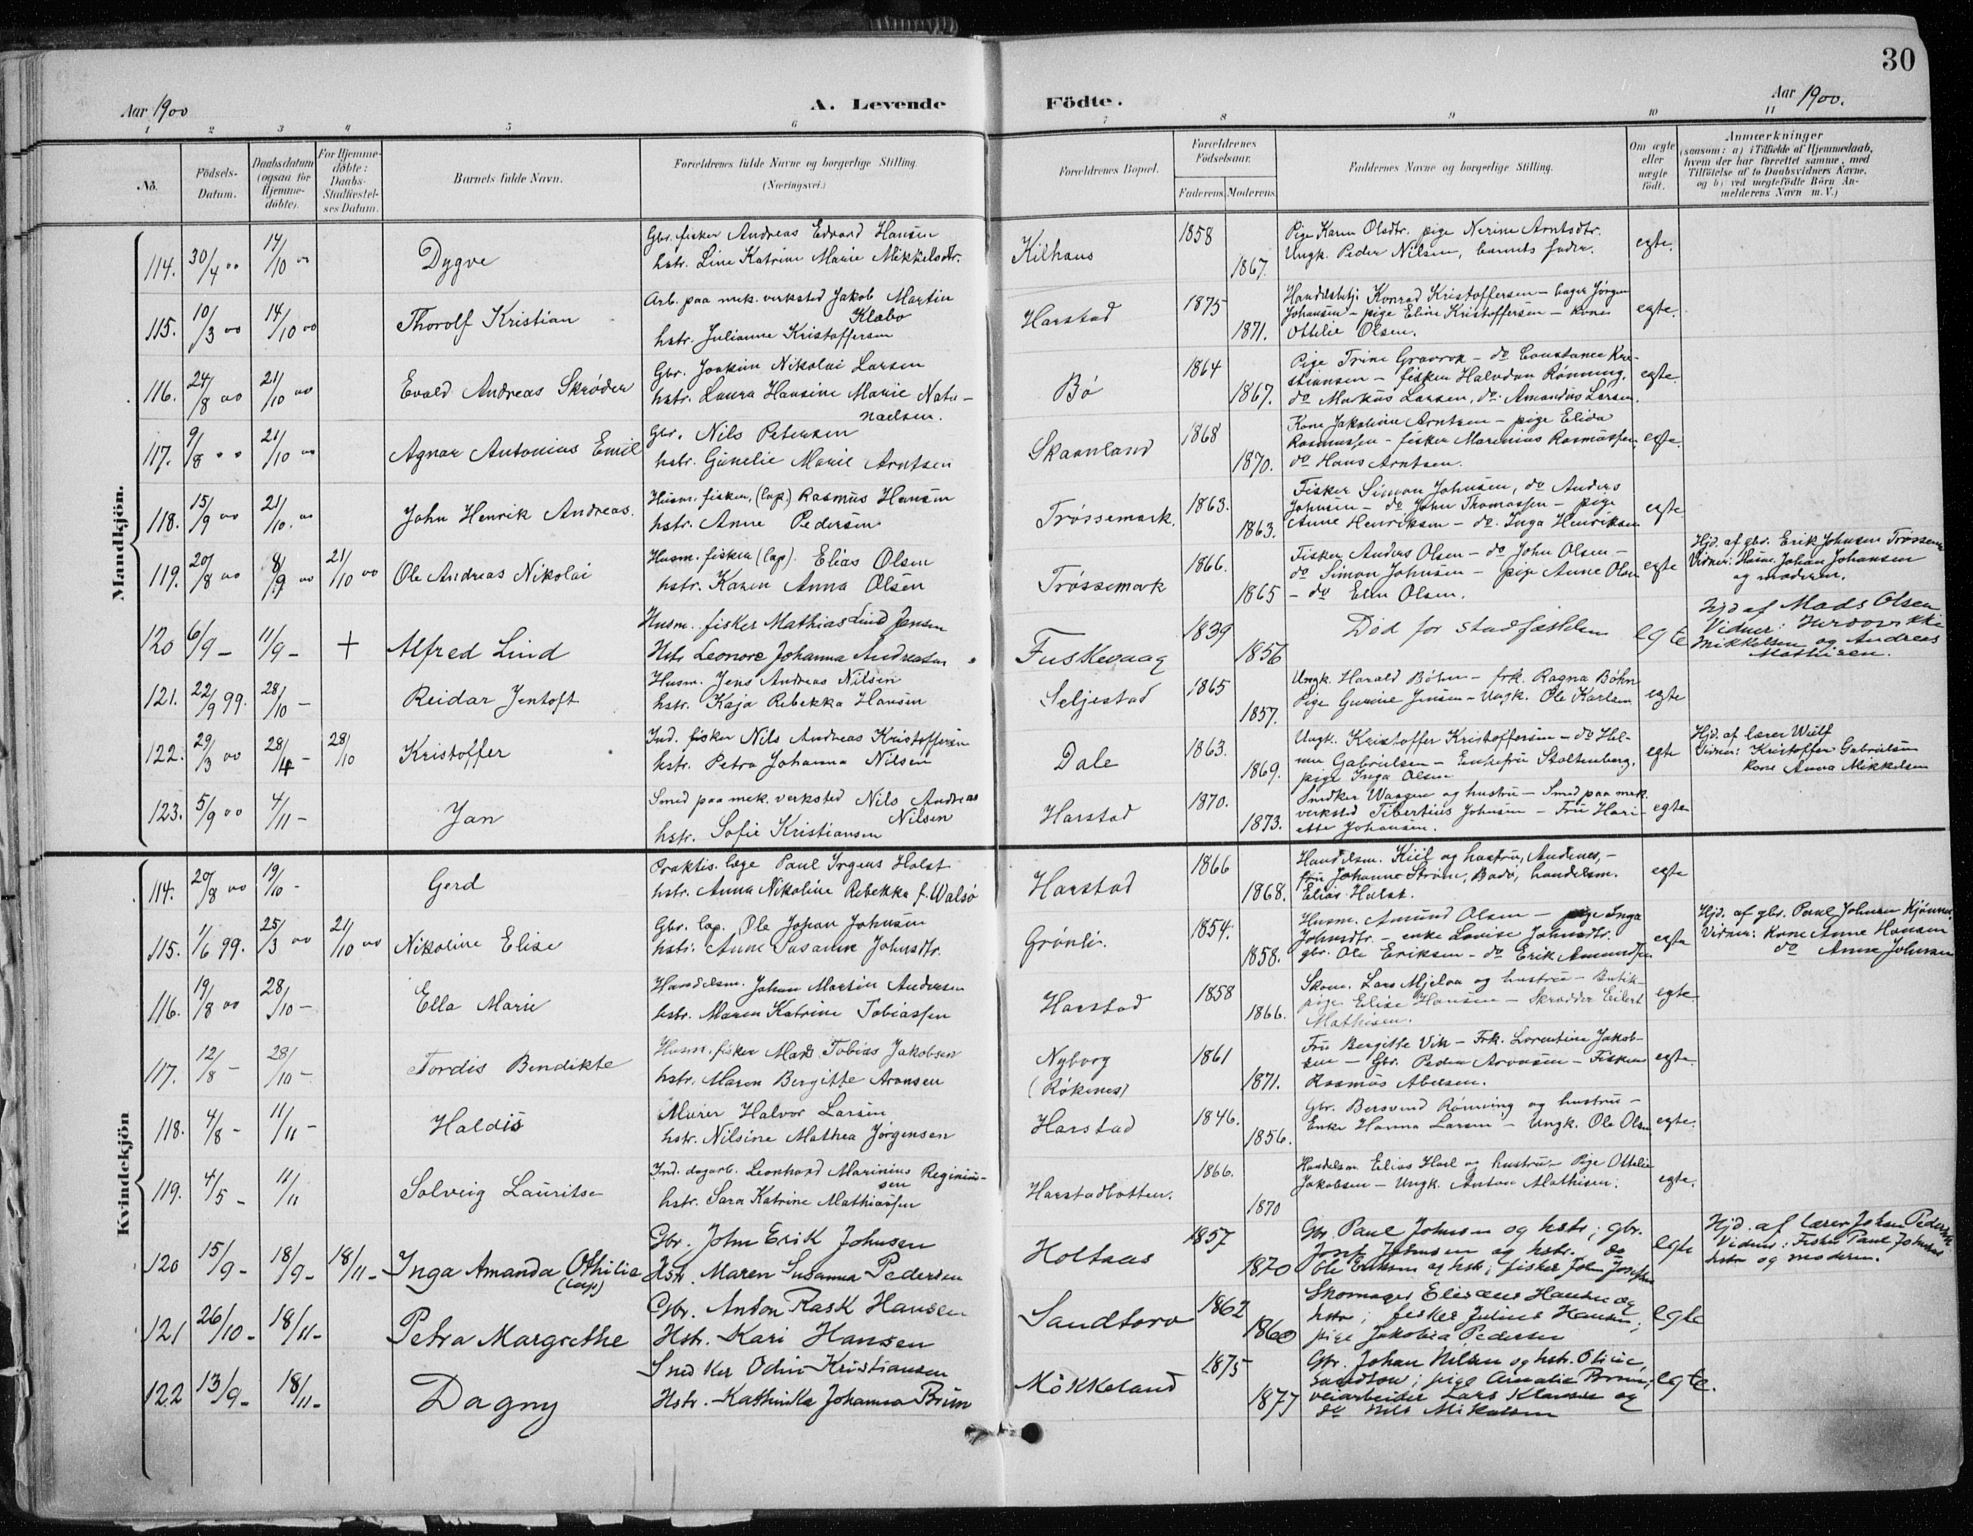 30
Aar 1900
A. Levende
Födte.
Aar 1900.
1 2 3 4 5 6 7 8 9 10 11
No.
Födsels-Datum.
Daabsdatum (ogsaa for Hjemme-döbte).
For Hjemme-döbte: Daabs-Stadfæstel-ses Datum.
Barnets fulde Navn.
Forældrenes fulde Navne og borgerlige Stilling.
(Næringsvei.)
Forældrenes Bopæl.
Forældrenes Födselsaar.
Faderens. Moderens.
Faddernes Navne og borgerlige Stilling.
Om ægte eller uægte födt.
Anmærkninger
(saasom: a) i Tilfælde af Hjemmedaab,
hvem der har forrettet samme, med
Tilföielse af to Daabsvidners Navne,
og b) ved uægtefödte Börn An-
melderens Navn m. V.)
Mandkjön.
114. 30/4 00 14/10 00 Dygve
Gbr. fisker Andreas Edvard Hansen
hstr. Line Katrine Marie Mikkelsdtr.
Kilhaus 1858 1867.
Pige Karen Olsdtr. pige Nerine Arntsdtr.
Ungk. Peder Nilsen, barnets fader.
egte.
115. 10/3 00 14/10 00 Thorolf Kristian
Arb. paa mek. verksted Jakob Martin
Klæbo
hstr. Julianne Kristoffersen
Harstad 1875 1871.
Handelsbetj. Konrad Kristoffersen – bager Jørgen
Johansen – pige Eline Kristoffersen – kone
Ottilie Olsen.
egte.
116. 24/8 00 21/10 00 Evald Andreas Skrøder
Gbr. Joakim Nikolai Larsen
hstr. Laura Hansine Marie Nata-
naelsen.
Bö 1864 1867.
Pige Trine Gravrok – do Constance Kri-
stiansen – fisker Halvdan Rönning,
do Markus Larsen, do. Amandus Larsen.
egte.
117. 9/8 " " 21/10 00 Agnar Antonius Emil
Gbr. Nils Petersen
hstr. Gunelie Marie Arntsen
Skaanland 1868 1870.
Kone Jakobine Arntsen – pige Elida
Rasmussen – fisker Marenius Rasmussen,
do Hans Arntsen.
egte.
118. 15/9 00 21/10. 00 John Henrik Andreas.
Husm. fisker, (lap.) Rasmus Hansen
hstr. Anne Pedersen
Trøssemark. 1863. 1863.
Fisker Simon Johnsen, do Anders
Johnsen – do John Thomassen – pige
Anne Henriksen – do. Inga Henriksen
egte
119. 20/8 00 8/9 00 21/10 00 Ole Andreas Nikolai
Husm. fisker (lap). Elias Olsen
hstr. Karen Anna Olsen
Trøssemark 1866. 1865
Fisker Anders Olsen – do John Olsen –
do Simon Johnsen – pige Anne Olsen
– do Elen Olsen.
egte
Hjd. af gbr. Erik Johnsen Trøssem
Vidner: Husm. Johan Johansen
og moderen.
120 6/9 – 11/9 – + Alfred Lind
Husm. fisker Mathias Lind Jensen
Hstr Leonore Johanna Andreassen
Fuskevaag 1839 1856
Død før stadfæstelsen
egte
Hjd af Mads Olsen
Vidner:
Mikkelsen og Andreas
Mathisen.
121. 22/9 99. 28/10 – Reidar Jentoft
Husm. Jens Andreas Nilsen
hstr. Kaja Rebekka Hansen
Seljestad 1865 1857.
Ungk. Harald Böhn – frk. Ragna Böhn
Pige Gunine Jensen – Ungk. Ole Karlsen
egte
122. 29/3 00 28/4 – 28/10 Kristoffer
Ind. fisker Nils Andreas Kristoffersen
hstr. Petra Johanna Nilsen
Dale 1863. 1869.
Ungk. Kristoffer Kristoffersen – do Hel-
mer Gabrielsen – Enkefru Stoltenberg,
pige Inga Olsen
egte
Hjd. af lærer Wulf
Vidner: Kristoffer Gabrielsen
kone Anna Mikkelsen
123. 5/9 00 4/11 – Jan
Smed paa mek. verksted Nils Andreas
Nilsen
hstr. Sofie Kristiansen
Harstad 1870. 1873.
Snedker Waagen og hustru – Smed paa mek.
verksted Tibertius Johnsen – Fru Hari-
ette Johansen.
egte
Kvindekjön
114. 20/8 00 19/10 – Gerd
Praktis. læge Paul Irgens Holst
hstr. Anna Nikoline Rebekka f. Walsø
Harstad 1866 1868.
Handelsm. Kiil og hustru, Andenes, –
fru Johanne Strøm, Bodø, handelsm.
Elias Holst.
egte
115. 1/6 99. 25/3 00 21/10 00 Nikoline Elise
Gbr. lap. Ole Johan Johnsen
hstr. Anne Susanne Johnsdtr.
Grönli. 1854. 1858.
Husm. Amund Olsen – pige Inga
Johnsdtr. – enke Lovise Johnsdtr.
gbr. Ole Eriksen – do Erik Amundsen
egte
Hjd. af gbr. Paul Johnsen Kjønna
Vidner: Kone Anne Hansen
do Anne Johnsen
116. 19/8 00 28/10 – Ella Marie
Handelsm. Johan Martin Andersen
hstr. Maren Katrine Tobiassen
Harstad 1858 1866.
Skom. Lars Mjelva og hustru – Butik-
pige Elise Hansen – Skrædder Eilert
Mathisen.
egte
117. 12/8 – 28/10 – Tordis Bendikte
Husm. fisker Mads Tobias Jakobsen
hstr. Maren Bergitte Aronsen
Nyborg
(Rökenes)
1861 1871.
Fru Bergitte Vik – Frk. Lorentine Jakob-
sen – Gbr. Peder Aronsen – Fisker
Rasmus Abelsen.
egte.
118. 4/8 – 11/11 – Haldis
Murer Halvor Larsen
hstr. Nilsine Mathea Jørgensen
Harstad 1846. 1856.
Gbr. Bersvend Rønning og hustru –
Enke Hanna Larsen – Ungk. Ole Olsen
egte.
119. 4/5 – 11/11 Solveig Lauritse
Ind. dagarb. Leonhard Marinius Reginius-
sen
hstr. Sara Katrine Mathiassen
Harstadbotten. 1866. 1870
Handelsm Elias Hoel og hustru – Pige Ottelie
Jakobsen – Ungk. Anton Mathisen.
egte.
120 15/9 – 18/9 – 18/11 – Inga Amanda Othilie
(lap)
Gbr. John Erik Johnsen
Hstr. Maren Susanna Pedersen
Holtaas 1857 1870
Gbr Paul Johnsen og hstr; gbr.
Josef Johnsen og hstr. do
Ole Eriksen og hstr; fisker John Josefsen
egte
Hjd. af lærer Johan Pedersen
Vidner: Fisker Paul Johnsen
hstr og moderen.
121 26/10 – 18/11 – Petra Margrethe
Gbr. Anton Rask Hansen
Hstr. Kari Hansen
Sandtorv 1862 1860
Skomager Elisæus Hansen og
hstr; fisker Julius Hansen;
pige Jakobea Pedersen
egte
122 13/9 – 18/11 – Dagny
Snedker Odin Kristiansen
Hstr. Kathinka Johanna Brun
Mökkeland 1875 1877
Gbr. Johan Nilsen og hstr. Olivie,
Sandtorv; pige Amalie Brun;
veiarbeider Lars Klausen og
do Nils Mikalsen
egte.